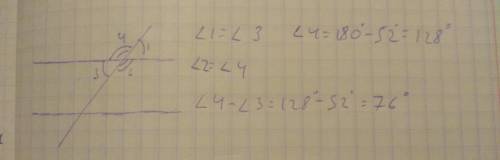 4
1
3
2
∠1=∠3 ∠4=180°-52°=128°
∠2=∠4
∠4-∠3=128°-52°=76°